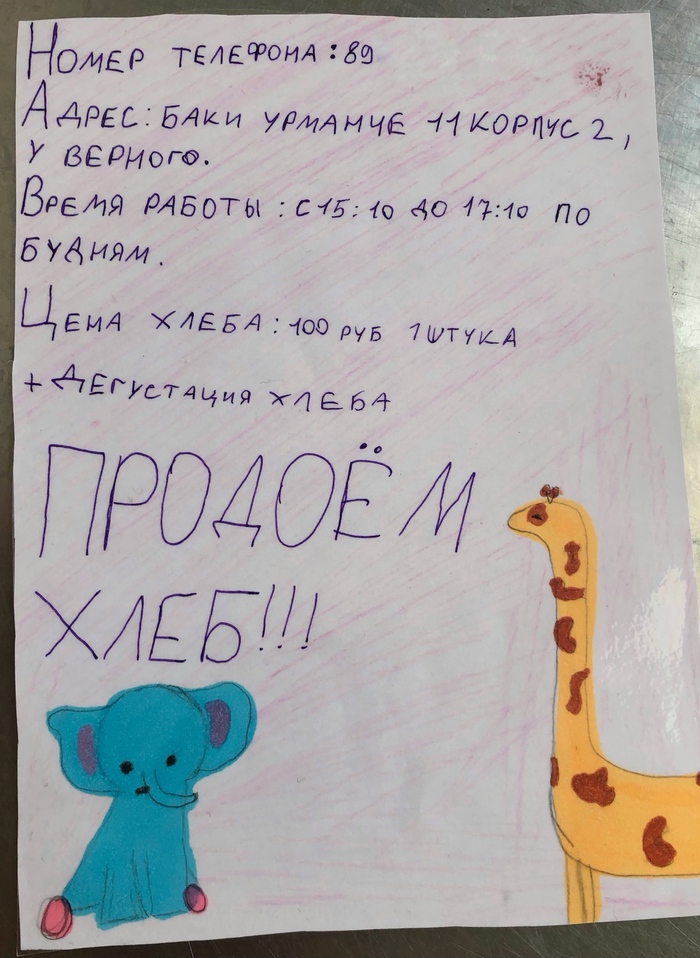 Номер телефона: 89
Адрес: Баки Урманче 11 корпус 2,
у Верного.
Время работы: с 15:10 до 17:10 по
будням.
Цена хлеба: 100 руб 1 штука
+ Дегустация хлеба
ПРОДОЁМ
ХЛЕБ!!!